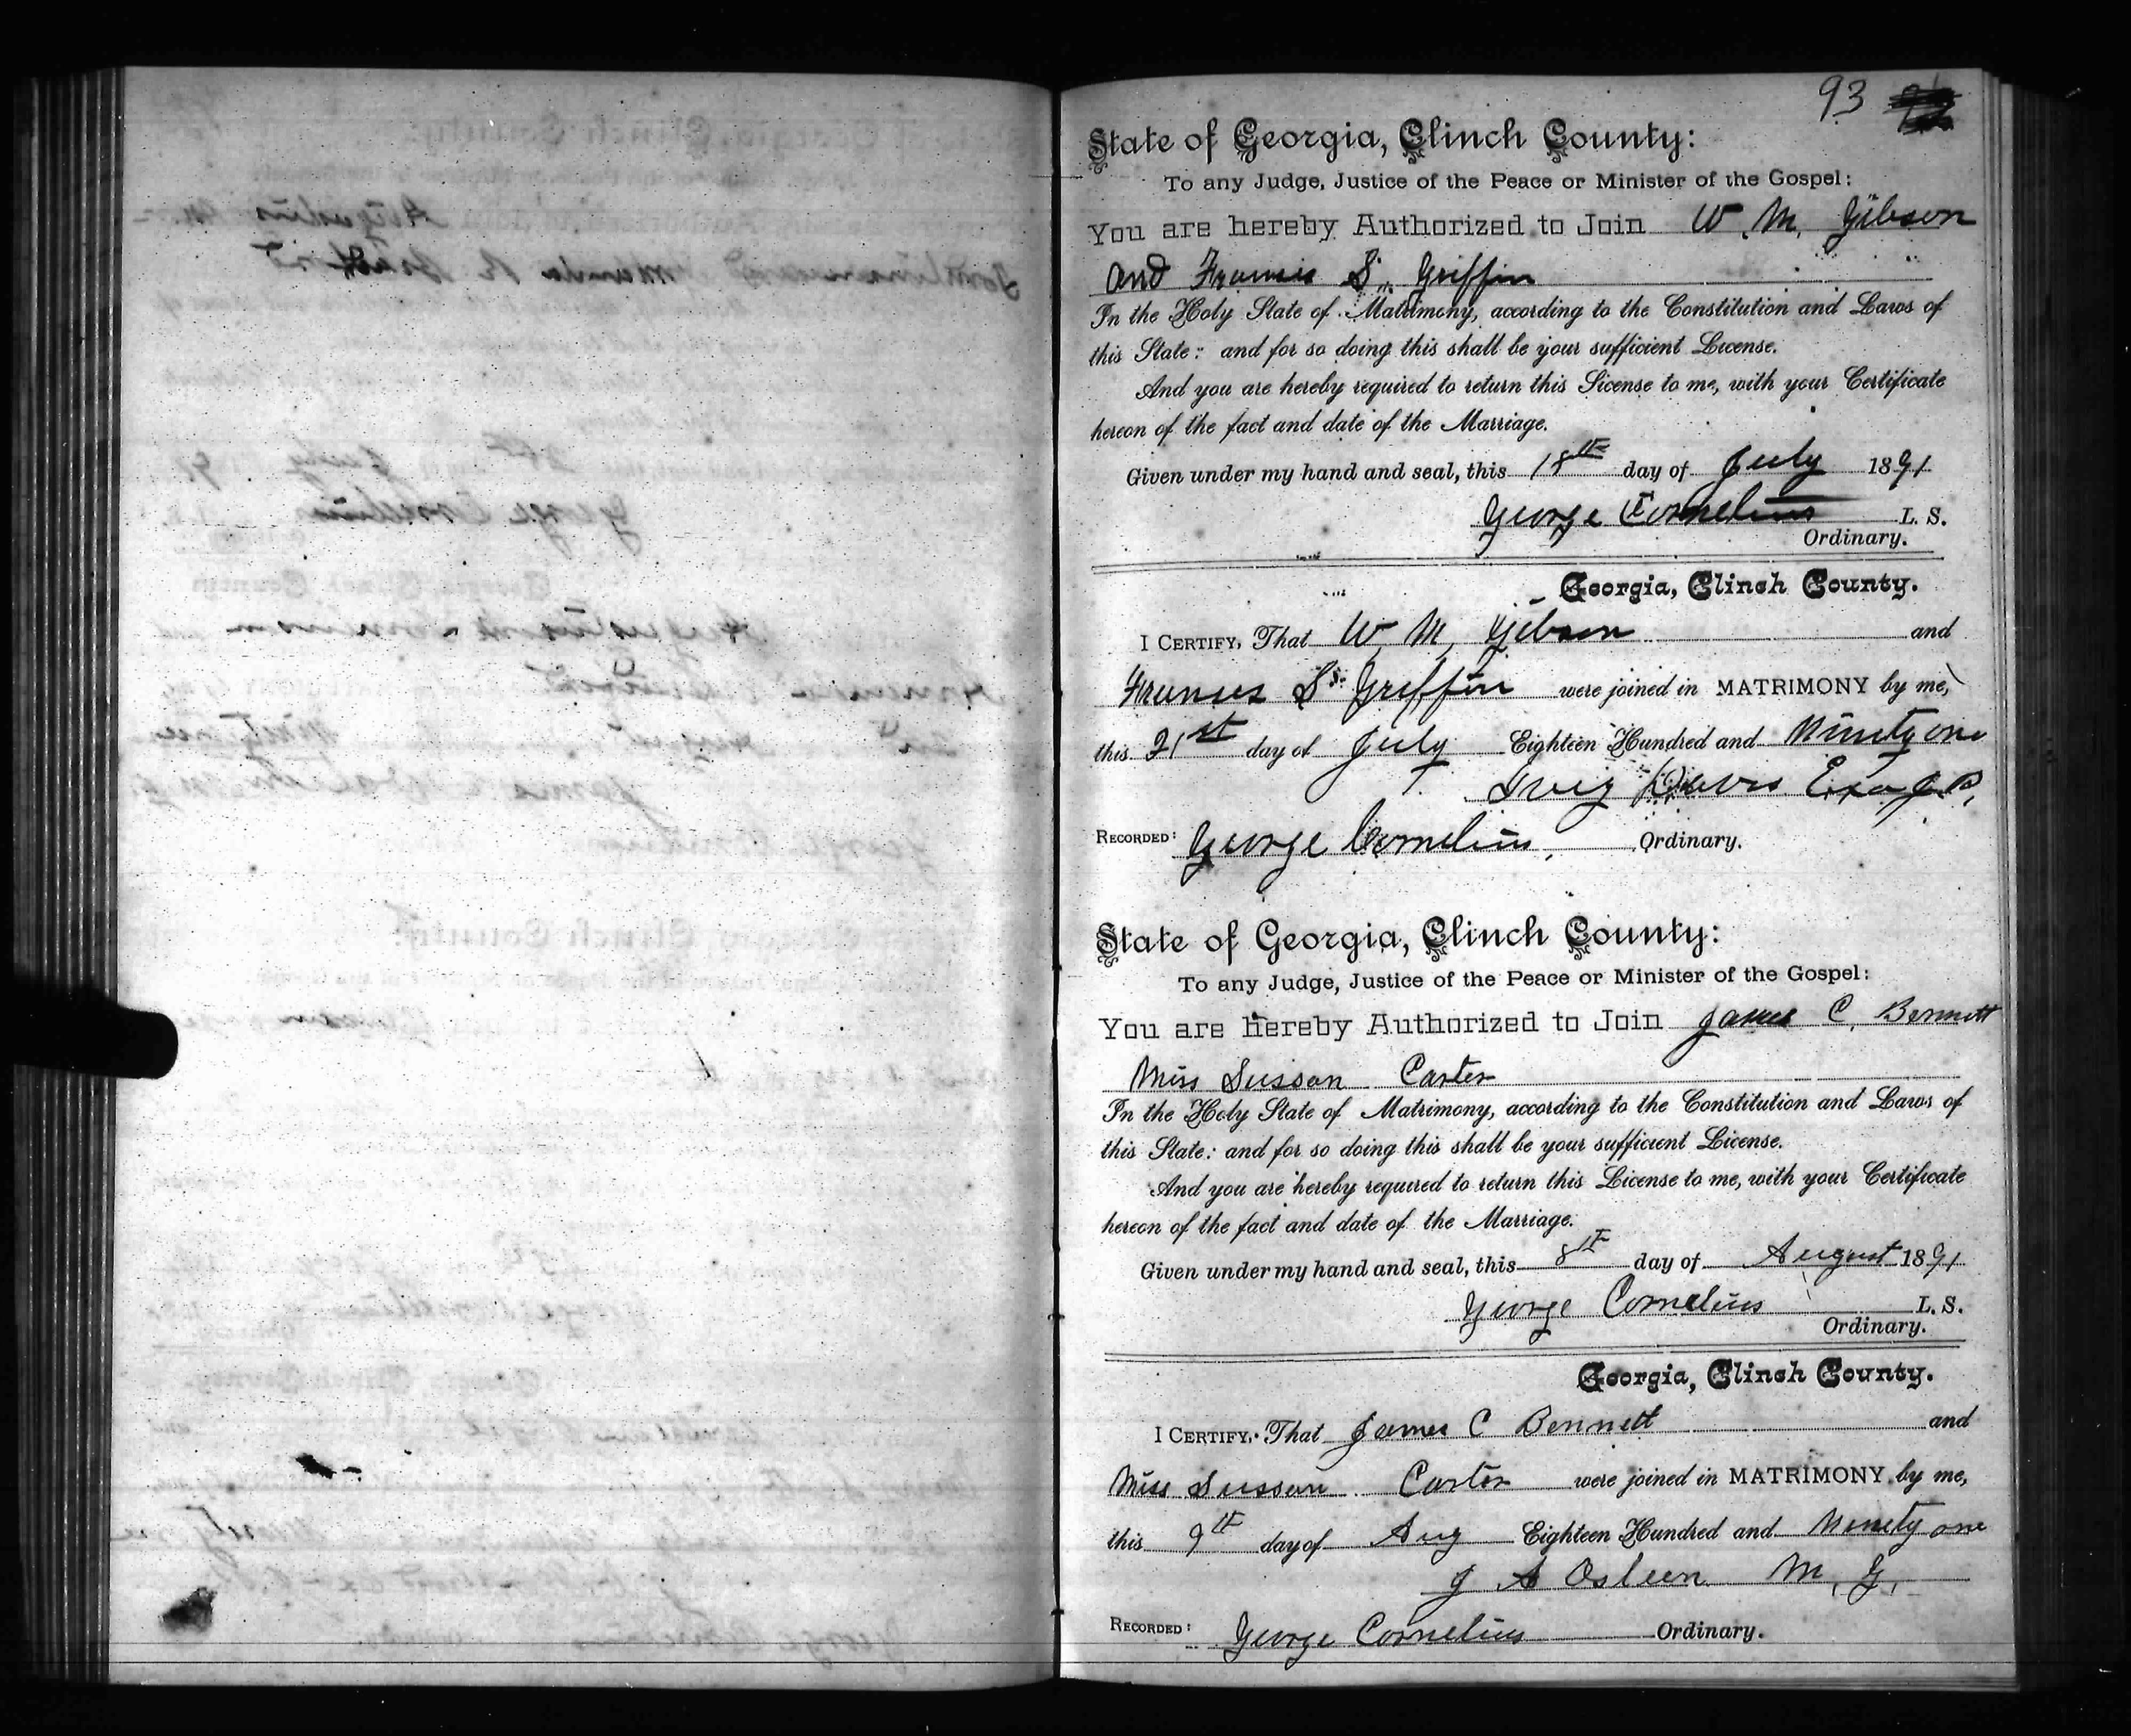 93
State of Georgia, Clinch County:
To any Judge, Justice of the Peace or Minister of the Gospel:
You are hereby Authorized to Join W. M. Gibson
and Francis S. Griffin
In the Holy State of Matrimony, according to the Constitution and Laws of
this State: and for so doing this shall be your sufficient License.
And you are hereby required to return this License to me, with your Certificate
hereon of the fact and date of the Marriage.
Given under my hand and seal, this 18th day of July 1891
George Cornelius L. S.
Ordinary.
Georgia, Clinch County.
I CERTIFY, That W. M. Gibson and
Frances S. Griffin were joined in MATRIMONY by me,
this 21st day of July Eighteen Hundred and Ninety one
Davis J.P.
RECORDED: George Cornelius, Ordinary.
State of Georgia, Clinch County:
To any Judge, Justice of the Peace or Minister of the Gospel:
You are hereby Authorized to Join James C. Bennett
Miss Susson Carter
In the Holy State of Matrimony, according to the Constitution and Laws of
this State: and for so doing this shall be your sufficient License.
And you are hereby required to return this License to me, with your Certificate
hereon of the fact and date of the Marriage.
Given under my hand and seal, this 8th day of August 1891
George Cornelius L. S.
Ordinary.
Georgia, Clinch County.
I CERTIFY, That James C Bennett and
Miss Susson Carter were joined in MATRIMONY by me,
this 9th day of Aug Eighteen Hundred and Ninety one
J A Osleen M. G.
RECORDED: George Cornelius Ordinary.